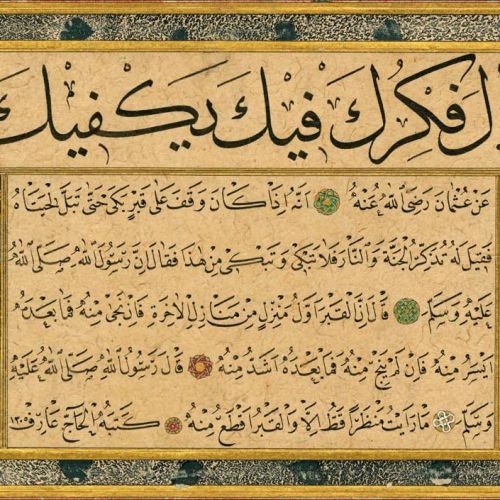 ل فكرك فيك يكفيك
عن عثمان رضى الله عنه انه اذا كان وقف على قبر بكى حتى تبل لحيته
فقيل له تذكر الجنة والنار فلا تبكى وتبكى من هذا فقال ان رسول الله صلى الله
عليه وسلم قال ان القبر اول منزل من منازل الاخرة فان نجى منه فما بعده
ايسر منه فان لم ينج منه فما بعده اشد منه قال رسول الله صلى الله عليه
وسلم ما رايت منظرا قط الا والقبر افظع منه كتبه الحاج عارف ١٣٠٥